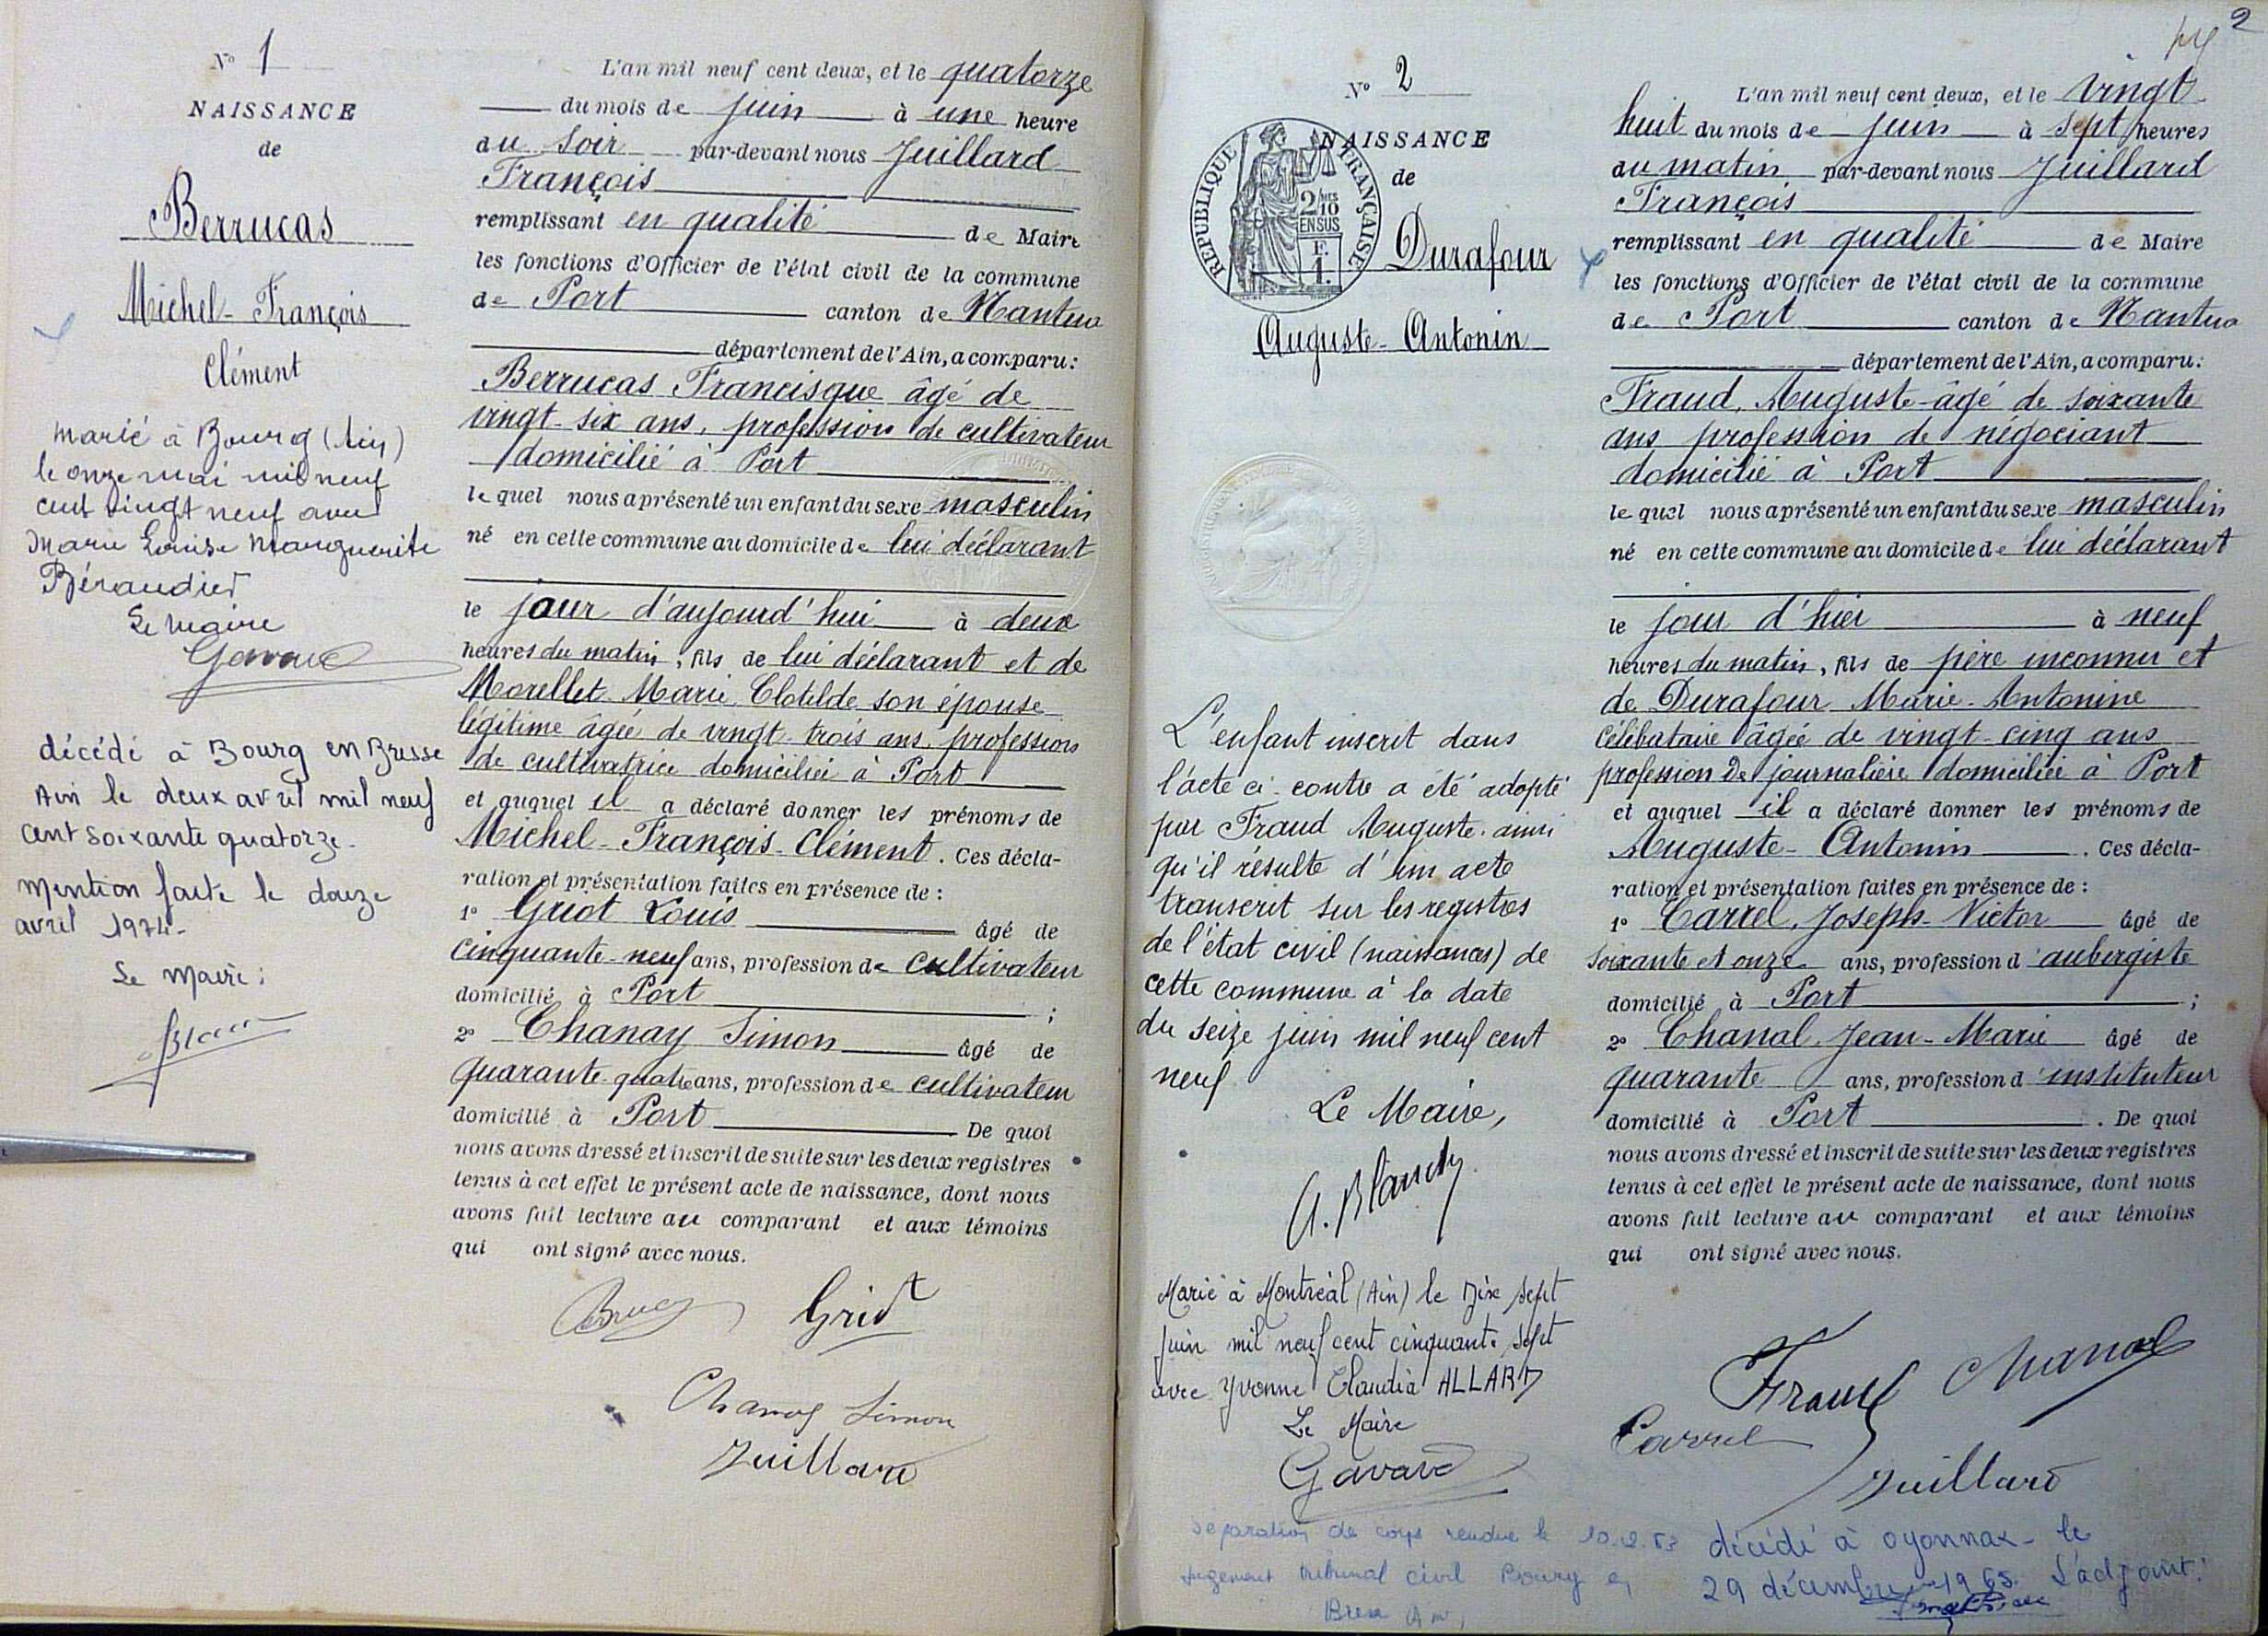 N° 1
NAISSANCE
de
Berrucas
Michel-François
Clément
marié à Bourg (Ain)
le onze mai mil neuf
cent vingt neuf avec
Marie Louise Marguerite
Béraudier
Le Maire
décédé à Bourg en Bresse
Ain le deux avril mil neuf
cent soixante quatorze.
Mention faite le douze
avril 1974-
Le Maire:
L'an mil neuf cent deux, et le quatorze
du mois de juin à une heure
du soir par-devant nous Juillard
François
remplissant en qualité de Maire
les fonctions d'Officier de l'état civil de la commune
de Port canton de Nantua
département de l'Ain, a comparu:
Berrucas Francisque âgé de
vingt-six ans, profession de cultivateur
domicilié à Port
lequel nous a présenté un enfant du sexe masculin
né en cette commune au domicile de lui déclarant
le jour d'aujourd'hui à deux
heures du matin, fils de lui déclarant et de
Morellet Marie Clotilde son épouse
légitime âgée de vingt-trois ans, profession
de cultivatrice domiciliée à Port
et auquel il a déclaré donner les prénoms de
Michel-François-Clément. Ces décla-
ration et présentation faites en présence de :
1° Griot Louis âgé de
cinquante-neuf ans, profession de cultivateur
domicilié à Port ;
2° Chanay Simon âgé de
quarante-quatre ans, profession de cultivateur
domicilié à Port De quoi
nous avons dressé et inscrit de suite sur les deux registres
tenus à cet effet le présent acte de naissance, dont nous
avons fait lecture au comparant et aux témoins
qui ont signé avec nous.
Griot
Chanay Simon
Juillard
2
N° 2
NAISSANCE
de
REPUBLIQUE FRANÇAISE
2/10 MES
EN SUS
F.
1.
Durafour
Auguste-Antonin
L'enfant inscrit dans
l'acte ci-contre a été adopté
par Fraud Auguste. ainsi
qu'il résulte d'un acte
transcrit sur les registres
de l'état civil (naissances) de
cette commune à la date
du seize juin mil neuf cent
neuf
Le Maire,
A. Blandy
Marié à Montréal (Ain) le dix sept
juin mil neuf cent cinquante sept
avec Yvonne Claudia ALLARD
Le Maire
Gavard
Séparation de corps rendue le
jugement tribunal civil Bourg en
L'an mil neuf cent deux, et le vingt
huit du mois de juin à sept heures
du matin par-devant nous Juillard
François
remplissant en qualité de Maire
les fonctions d'Officier de l'état civil de la commune
de Port canton de Nantua
département de l'Ain, a comparu:
Fraud, Auguste âgé de soixante
ans profession de négociant
domicilié à Port
lequel nous a présenté un enfant du sexe masculin
né en cette commune au domicile de lui déclarant
le jour d'hier à neuf
heures du matin, fils de père inconnu et
de Durafour Marie-Antonine
célibataire âgée de vingt-cinq ans
profession de journalière domiciliée à Port
et auquel il a déclaré donner les prénoms de
Auguste-Antonin. Ces décla-
ration et présentation faites en présence de :
1° Carrel, Joseph-Victor âgé de
soixante et onze ans, profession d'aubergiste
domicilié à Port ;
2° Chanal Jean-Marie âgé de
quarante ans, profession d'instituteur
domicilié à Port . De quoi
nous avons dressé et inscrit de suite sur les deux registres
tenus à cet effet le présent acte de naissance, dont nous
avons fait lecture au comparant et aux témoins
qui ont signé avec nous.
Fraud Chanal
Carrel
Juillard
décédé à Oyonnax - le
29 décembre 1965. L'adjoint: